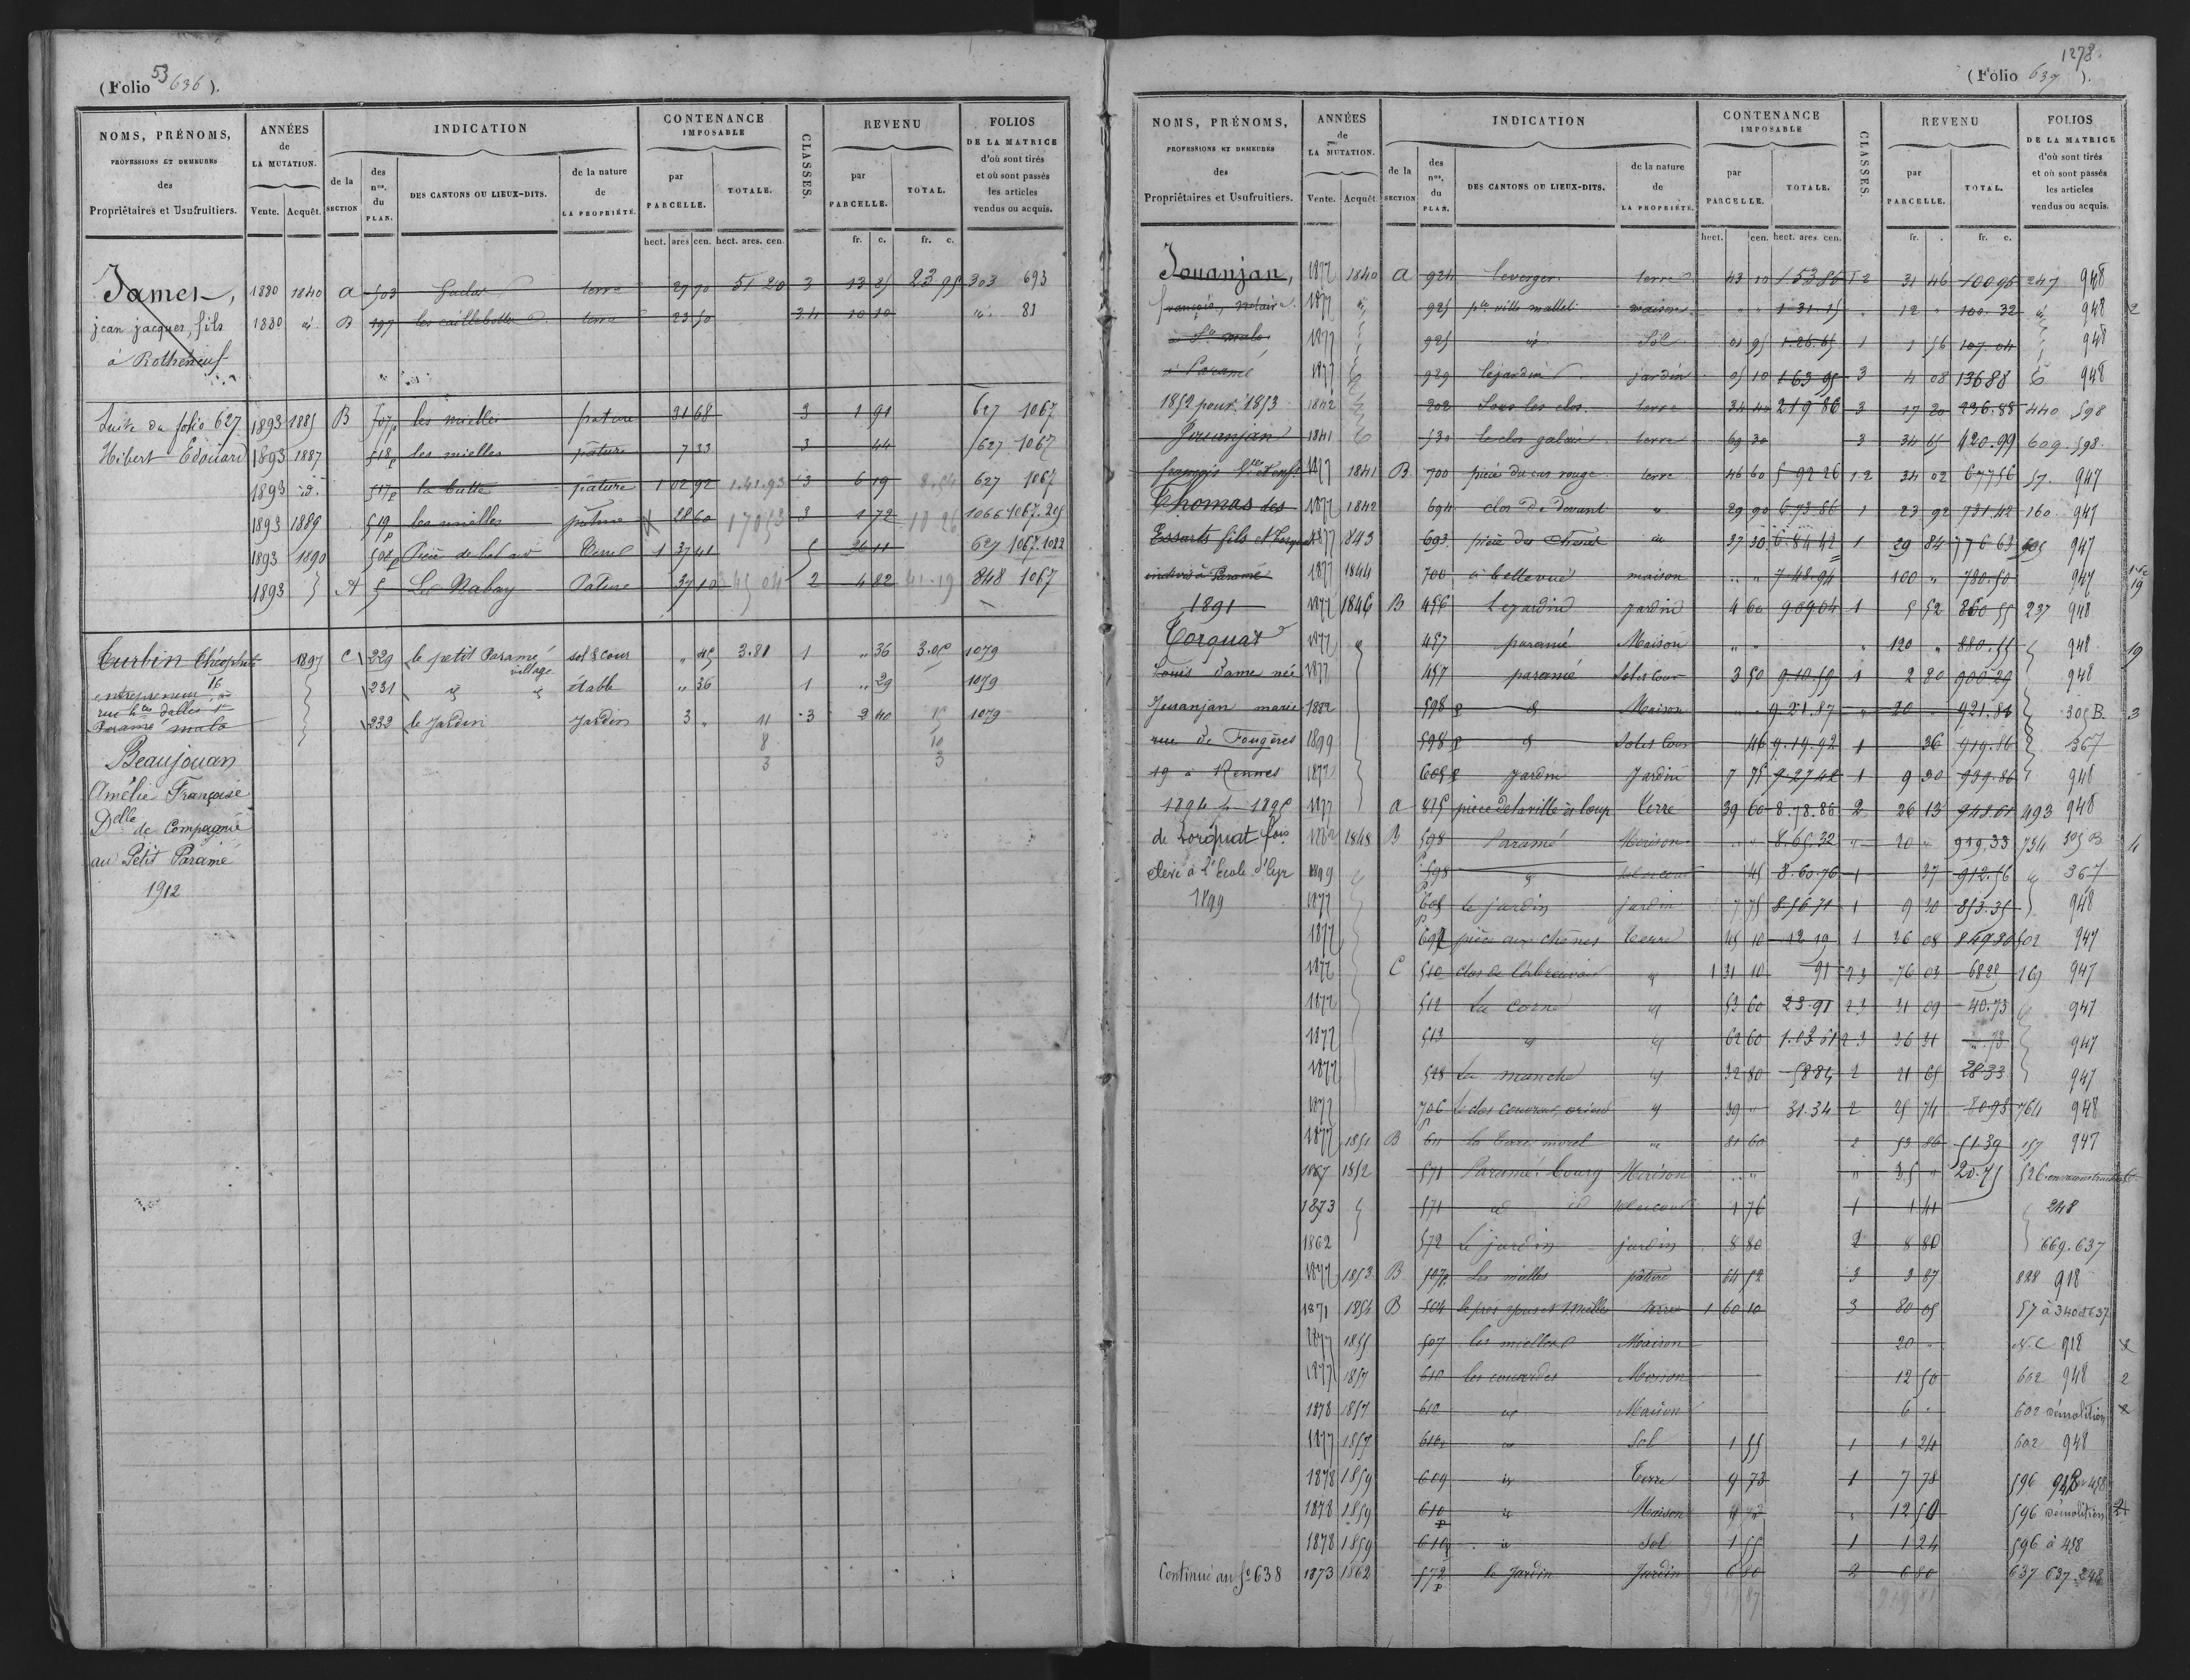 (Folio 636).
53
NOMS, PRÉNOMS,
PROFESSIONS ET DEMEURES
des
Propriétaires et Usufruitiers.
ANNÉES
de
LA MUTATION.
Vente. Acquêt.
INDICATION
de la
SECTION
des
nos.
du
PLAN.
DES CANTONS OU LIEUX-DITS.
de la nature
de
LA PROPRIÉTÉ.
CONTENANCE
IMPOSABLE
par
PARCELLE.
TOTALE.
hect. ares cen. hect. ares. cen.
CLASSES.
REVENU
par
PARCELLE.
TOTAL.
fr. c. fr. c.
FOLIOS
DE LA MATRICE
d'où sont tirés
et où sont passés
les articles
vendus ou acquis.
James, 1880 1840 a 503 terre 27 70 51 20 3 13 85 23 95 303 693
jean jacques, fils 1880 id. B 197 les caillebottes terre 23 50 3.4 10 10 id. 81
à Rotheneuf
Suite du folio 627 1893 1885 B 507p les mielles pature 31 68 3 1 91 627 1067
Hibert Edouard 1893 1887 518p les mielles pâture 7 33 3 44 627 1067
1893 id. 517p la butte pâture 1 02 92 1.41.93 3 6 19 8.54 627 1067
1893 1889 519p les mielles pâture 28 60 3 1 72 1066 1067.205
1893 1890 504p Terre 1 37 41 5 36 11 627 1067.1022
1893 A 5 Le Nabay Pature 37 10 2 4 82 41.19 848 1067
Turbin Théophile 1897 C 229 le petit Paramé village sol & cour 45 3.81 1 " 36 3.05 1079
entrepreneur 16 231 id id étable " 36 1 " 29 1079
rue htes Salles
Paramé malo 233 le Jardin Jardin 3 " 3 2 40 1079
Beaujouan
Amélie Françoise
Delle de Compagnie
au Petit Paramé
1912
1278.
(Folio 637).
NOMS, PRÉNOMS,
PROFESSIONS ET DEMEURES
des
Propriétaires et Usufruitiers.
ANNÉES
de
LA MUTATION.
Vente. Acquêt
INDICATION
de la
SECTION
des
nos.
du
PLAN.
DES CANTONS OU LIEUX-DITS.
de la nature
de
LA PROPRIÉTÉ.
CONTENANCE
IMPOSABLE
par
PARCELLE.
TOTALE.
hect. cen. hect. ares. cen.
CLASSES.
REVENU
par
PARCELLE.
TOTAL.
fr. . fr. c.
FOLIOS
DE LA MATRICE
d'où sont tirés
et où sont passés
les articles
vendus ou acquis.
Jouanjan, 1877 1840 a 924 le verger terre 43 10 1 53 86 1 2 31 46 100 96 247 948
françois, notaire 1877 id 925 pte ville mallet maison " " 1.31.15 " 12 " 100.32 id 948 2
à St malo 1877 925 id Sol 01 95 1.26.65 1 1 56 107.04 948
à Paramé 1877 929 le jardin jardin 05 10 1 63 95 3 4 08 136 88 948
1852 pour 1853 1842 202 Sous les clos terre 34 40 2 19 86 3 17 20 236.88 440 598
Jouanjan 1841 530 le clos galais terre 69 30 3 34 65 420.99 609. 598.
1877 1841 B 700 pièce du cas rouge terre 46 60 5 92 26 1.2 34 02 677 56 57. 947
Thomas des 1877 1842 694 clos de devant " 29 90 6 73 86 1 23 92 731.42 160. 947
Essarts fils 1877 843 693 pièce des Chênes id 37 30 6 84 42 1 29 84 776 63 947
indivis à Paramé 1877 1844 700 à bellevue maison " " 7.48.94 100 " 780.50 947 19
1891 1877 1846 B 456 Le jardin Jardin 4 60 9 09 04 1 5 52 860 55 237 948
Torquat 1877 457 paramé Maison " " " 120 " 880.55 948 19
Louis Dame née 1877 457 paramé Sol et Cour 3 50 9.10.59 1 2 80 900 29 948
Jouanjan marie 1882 598 p id Maison " " 9.21.87 " 20 " 921.86 305 B. 3
rue de Fougères 1899 598 p id Sol et Cour 46 9.19.92 1 36 919.86 367
19 à Rennes 1877 605 p Jardin Jardin 7 75 9.27.42 1 9 30 939.86 948
1894 p 1895 1877 a 815 pièce de la ville ès loup Terre 39 60 8.78.86 2 26 13 948.61 493 948
de Torquat fois 1882 1848 B 598 Paramé Maison " " 8.65.32 " 20 " 919.33 734 305 B 4
élève à l'école d'Cyr 1899 598 id sol et cour 45 8.60.76 1 37 912.56 id 367
1899 1877 605 le jardin jardin 7 75 8.56.71 1 9 30 853.35 948
1877 692 pièce aux chênes terre 45 10 1 36 08 849.80 502 947
1877 C 510 clos de l'abreuvoir id 1 31 10 91 2 3 76 03 68 28 169 947
1877 512 La Corne id 53 60 23.91 2 3 31 09 40.73 947
1877 513 id id 62 60 1.03.61 2 3 36 31 ".73 947
1877 528 La manche id 32 80 58 84 2 21 65 28 33 947
1877 706 Le clos id 39 " 31.34 2 25 74 80.98 764 948
1877 1851 B 611 la morel id 81 60 2 53 86 51.39 157 947
1867 1852 571 Paramé Bourg Maison " " " 35 " 20.75 526 en reconstruction
1873 571 id id sol et cour 1 76 1 1 41 248
1862 572 Le jardin jardin 8 80 2 8 80 669.637
1877 1853 B 507p. Les mielles pâture 64 52 3 3 87 828 918
1871 1854 B 504 Terre 1 60 10 3 80 05 57 à 340 et 637
1877 1855 507 les mielles Maison 20 " N.C 918
1877 1857 610 les Maison 12 50 602 948 2
1878 1857 610 id Maison 6 " 602 démolition 2
1877 1857 610p id Sol 1 55 1 1 24 602 948
1878 1859 609 id Terre 9 73 1 7 78 596
1878 1859 610 p id Maison " 12 50 596 démolition 2
1878 1859 610p id Sol 1 55 1 1 24 596 à 458
Continué au fo 638 1873 1862 572 p le Jardin Jardin 6 80 2 6 80 637 637.248